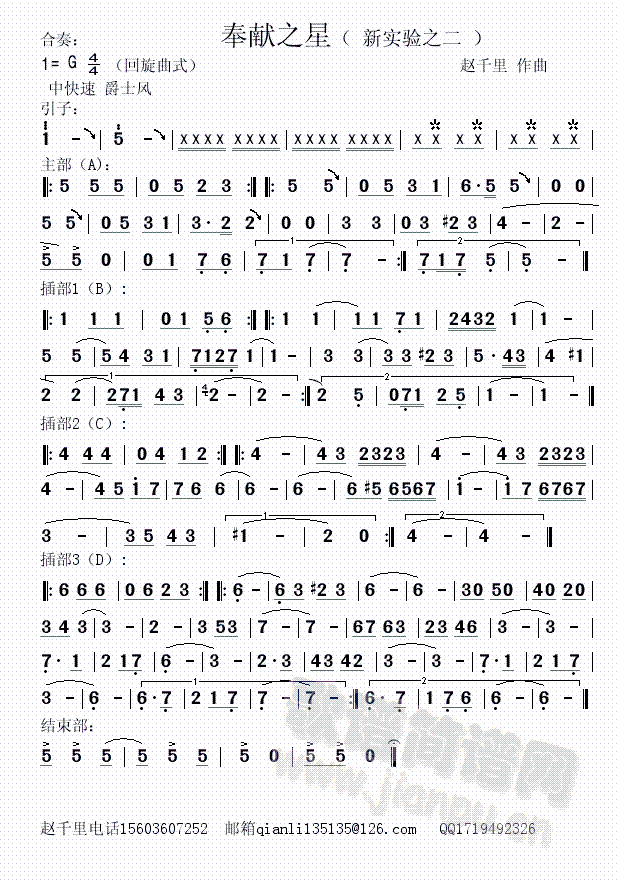 合奏： 奉献之星（ 新实验之二 ）
1= G 4/4 （回旋曲式） 赵千里 作曲
中快速 爵士风
引子：
1 - | 5 - | X X X X X X X X | X X X X X X X X | X X X X | X X X X |
主部（A）：
|: 5 5 5 | 0 5 2 3 :| |: 5 5 | 0 5 3 1 | 6· 5 5 | 0 0 |
5 5 | 0 5 3 1 | 3· 2 2 | 0 0 | 3 3 | 0 3 #2 3 | 4 - | 2 - |
5 5 0 | 0 1 7 6 | 7 1 7 | 7 - :| 7 1 7 5 | 5 - ||
插部1（B）：
|: 1 1 1 | 0 1 5 6 :| |: 1 1 | 1 1 7 1 | 2432 1 | 1 - |
5 5 | 5 4 3 1 | 7127 1 | 1 - | 3 3 | 3 3 #2 3 | 5· 43 | 4 #1 |
2 2 | 271 4 3 | 4/4 2 - | 2 - :| 2 5 | 071 2 5 | 1 - | 1 - ||
插部2（C）：
|: 4 4 4 | 0 4 1 2 :| |: 4 - | 4 3 2323 | 4 - | 4 3 2323 |
4 - | 4 5 1 7 | 7 6 6 | 6 - | 6 - | 6 #5 6567 | 1 - | 1 7 6767 |
3 - | 3 5 4 3 | #1 - | 2 0 :| 4 - | 4 - ||
插部3（D）：
|: 6 6 6 | 0 6 2 3 :| |: 6 - | 6 3 #2 3 | 6 - | 6 - | 30 50 | 40 20 |
3 4 3 | 3 - | 2 - | 3 53 | 7 - | 7 - | 67 63 | 23 46 | 3 - | 3 - |
7· 1 | 2 17 | 6 - | 3 - | 2· 3 | 43 42 | 3 - | 3 - | 7· 1 | 2 1 7 |
3 - | 6 - | 6· 7 | 2 1 7 | 7 - | 7 - :| 6· 7 | 1 7 6 | 6 - | 6 - ||
结束部：
5 5 5 | 5 5 5 5 | 5 0 | 5 5 0 ||
歌谱简谱网
www.jianpu.cn
赵千里电话15603607252 邮箱qianli135135@126.com QQ1719492326